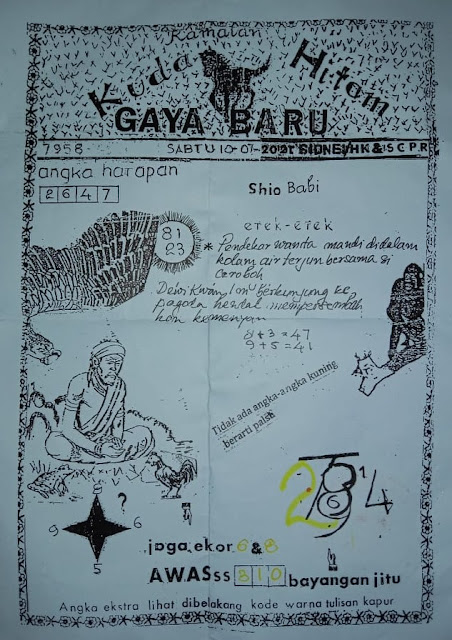 Ramalan
Kuda Hitam
GAYA BARU
7958 SABTU 10-07-2021 SIDNEY/HK & SGPR
angka harapan
2647
Shio Babi
81
23
erek-erek
* Pendekar wanita mandi didalam
kolam air terjun bersama si
ceroboh
Dewi Kwan Im berkunjung ke
pagoda hendak mempersembah
kan kemenyan
8+3=47
9+5=41
Tidak ada angka-angka kuning
berarti palsu
?
9 6
5
2 6 1 4
jaga ekor 6 & 8
AWASss 810 bayangan jitu
Angka ekstra lihat dibelakang kode warna tulisan kapur